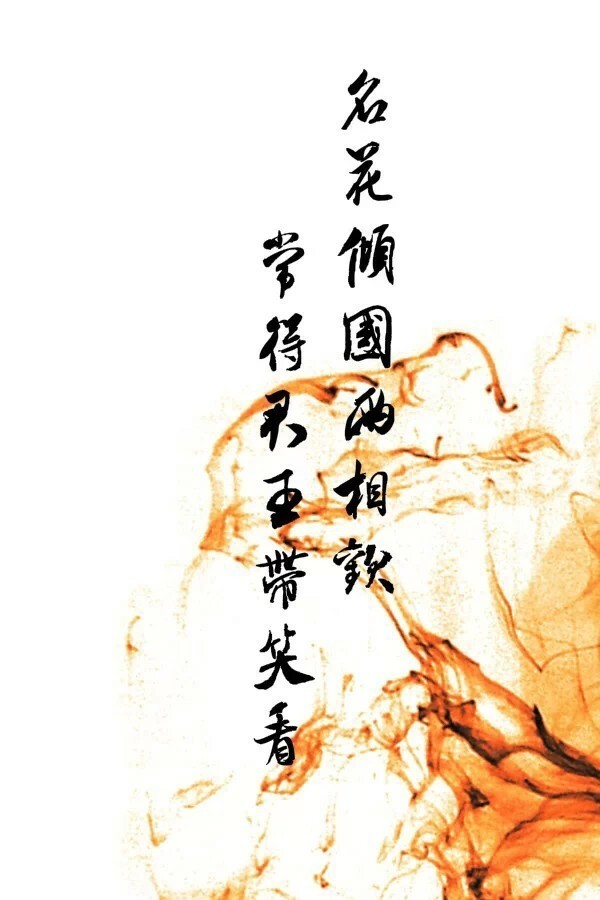 名花傾國兩相歡
常得君王帶笑看